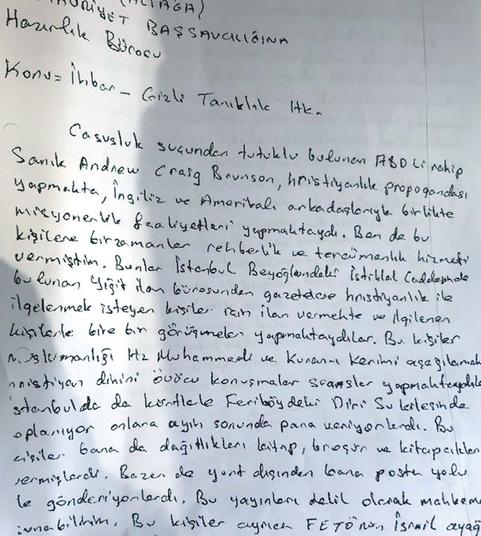 (ALİAĞA)
BAŞSAVCILIĞINA
Hazırlık Bürosu
Konu = İhbar - Gizli Tanıklık Hk.
Casusluk suçundan tutuklu bulunan ABD Li rahip
Sanık Andrew Craig Brunson, hristiyanlık propogandası
yapmakta, İngiliz ve Amerikalı arkadaşlarıyla birlikte
misyonerlik faaliyetleri yapmaktaydı. Ben de bu
kişilere birzamanlar rehberlik ve tercümanlık hizmeti
vermiştim. Bunlar İstanbul Beyoğlundeki İstiklal Caddesinde
bulunan Yiğit ilan bürosundan gazetelere hristiyanlık ile
ilgelenmek isteyen kişiler için ilan vermekte ve ilgilenen
kişilerle bire bir görüşmeler yapmaktaydılar. Bu kişiler
müslümanlığı Hz Muhammedi ve Kuranı Kerimi aşağılamak
hristiyan dinini övücü konuşmalar seansler yapmaktaydılar
istanbulda da kürtlerle Feriköydeki Dini Su kilesinde
oplanıyor onlara ayın sonunda para veriyorlardı. Bu
kişiler bana da dağıttıkları kitap, broşür ve kitapcıkları
vermişlerdi. Bazen de yurt dışından bana posta yolu
le gönderiyorlardı. Bu yayınları delil olarak mahkem
sunabilirim. Bu kişiler ayrıca FETÖ'nün İsmail ayağ